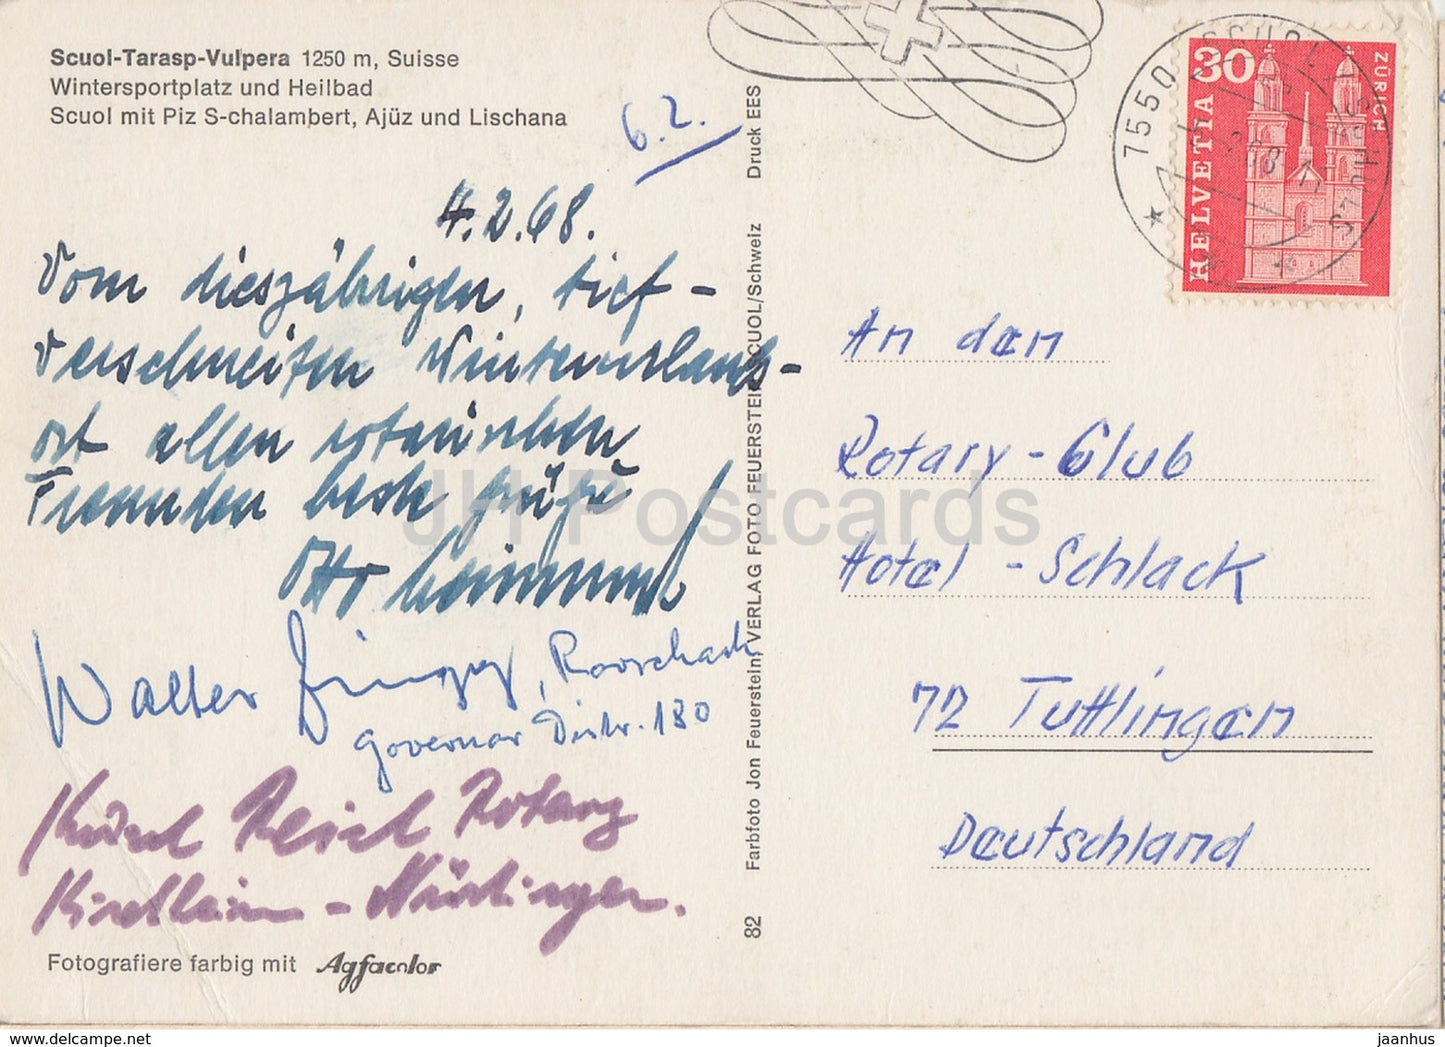 Scuol-Tarasp-Vulpera 1250 m, Suisse
Wintersportplatz und Heilbad
Scuol mit Piz S-chalambert, Ajüz und Lischana
6.2.
4.2.68.
Vom diesjährigen, tief-
verschneiten Winterurlaubs-
ort allen rotarischen
Freunden beste Grüße
Otto
Walter, Rorschach
Governor Distr. 180
Rotary
Kirchheim - Nürtingen.
Fotografiere farbig mit Agfacolor
82 Farbfoto Jon Feuerstein, VERLAG FOTO FEUERSTEIN SCUOL/Schweiz Druck EES
7550 SCUOL/SCHULS
30
HELVETIA
ZÜRICH
An den
Rotary-Club
Hotel-Schlack
72 Tuttlingen
Deutschland
JH Postcards
jaanhus
www.delcampe.net